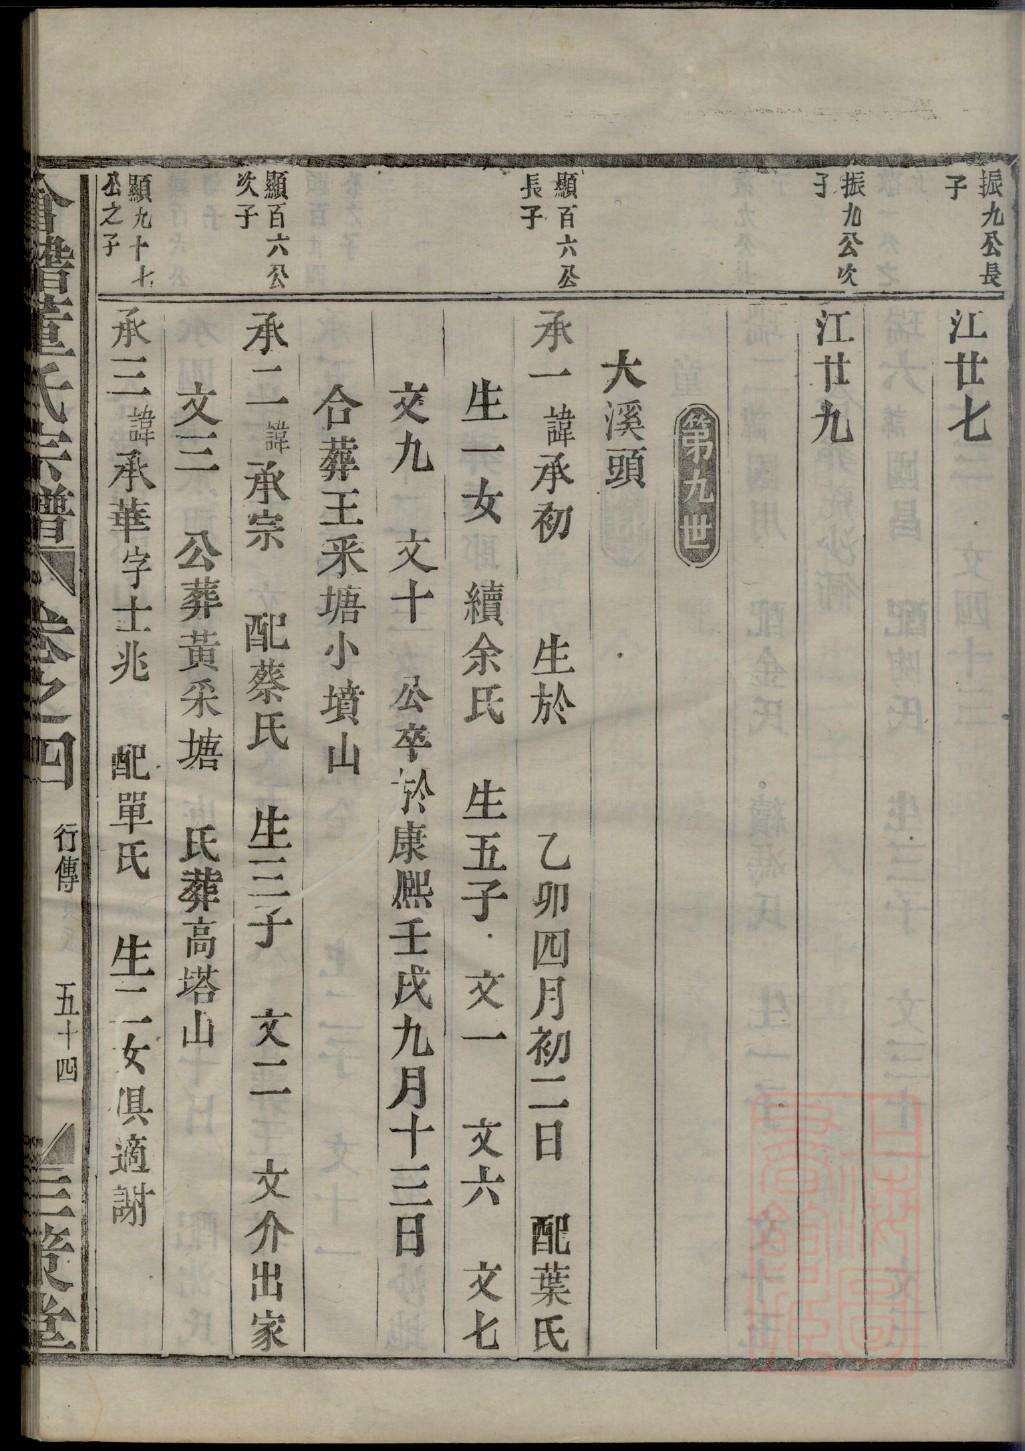 振九公長子
江廿七
振九公次子
江廿九
第九世
大溪頭
顯百六公長子
承一 諱承初 生於 乙卯四月初二日 配葉氏
生一女 續余氏 生五子 文一 文六 文七
文九 文十 公卒於康熙壬戌九月十三日
合葬王釆塘小墳山
顯百六公次子
承二 諱承宗 配蔡氏 生三子 文二 文介出家
文三 公葬黃釆塘 氏葬高塔山
顯九十七公之子
承三 諱承華字士兆 配單氏 生二女俱適謝
會稽董氏宗譜 卷之四 行傳 五十四 三策堂